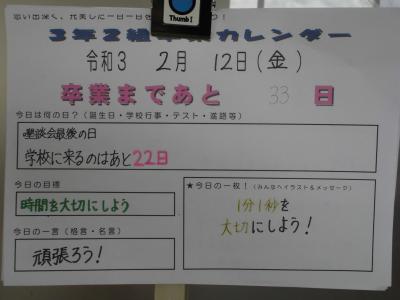 思い出深く、充実した一日一日を
Thumb1
3年2組卒業カレンダー
令和3 2月 12日(金)
卒業まであと 33 日
今日は何の日?(誕生日・学校行事・テスト・進路等)
懇談会最後の日
学校に来るのはあと22日
今日の目標
時間を大切にしよう
今日の一言(格言・名言)
頑張ろう!
★今日の一枚!(みんなへイラスト&メッセージ)
1分1秒を
大切にしよう!